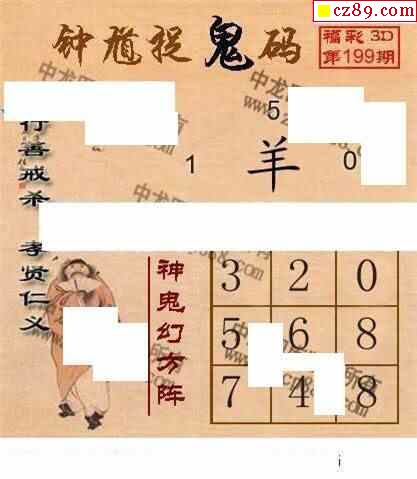 cz89.com
钟馗捉鬼码
福彩3D
第199期
5
1 羊 0
行善戒杀
孝贤仁义
神鬼幻方阵
3 2 0
5 6 8
7 4 8
i